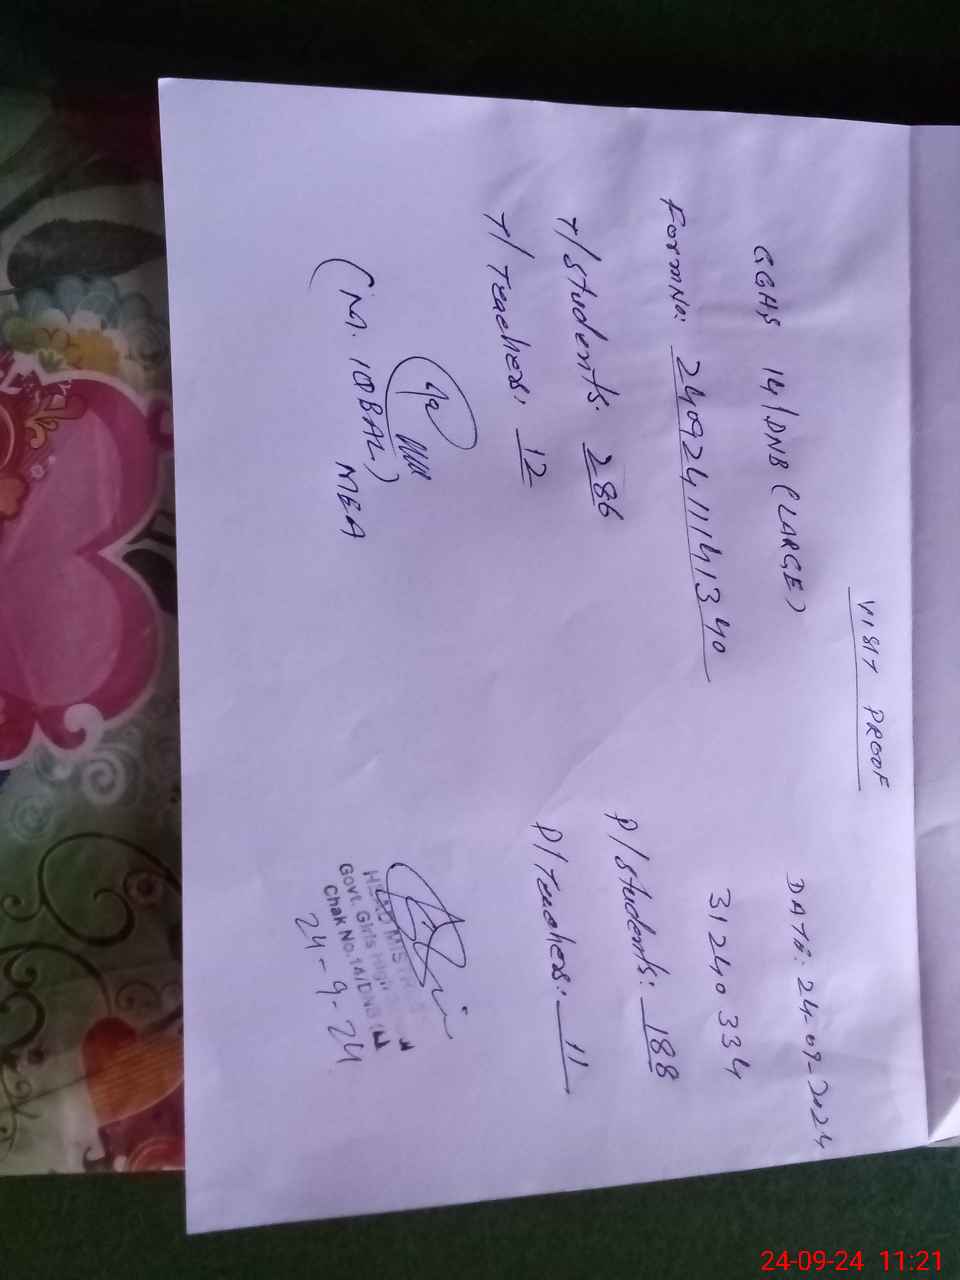 VISIT PROOF
DATE: 24-09-2024
GGHS 1A/DNB (LARGE)
31240334
Form No: 240924111141340
T/students: 286
P/students: 188
T/Teachers: 12
P/Teachers: 11
(M. IQBAL)
MEA
HEAD MISTRESS
Govt. Girls High
Chak No.1A/DNB
24-9-24
24-09-24 11:21